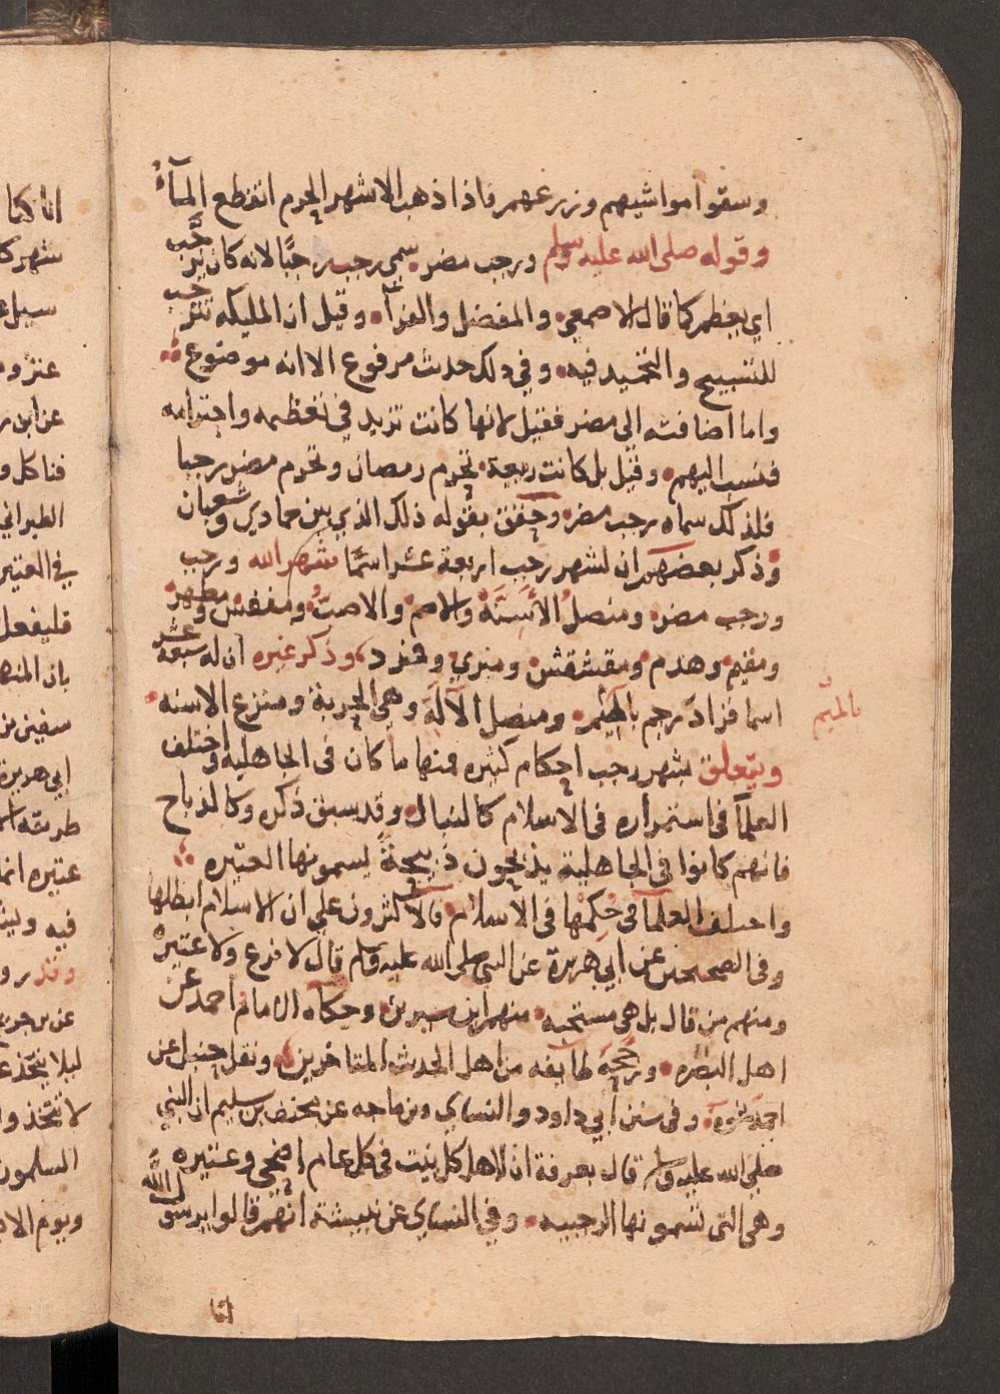 وسقوا مواشيهم وزرعهم فاذا ذهب الاشهر الحرم انقطع المآء
وقوله صلى الله عليه وسلم ورجب مضر سمي رجب رجبًا لانه كان يرجَّب
اي يعظم كما قال الاصمعي والمفضل والفرآ وقيل ان المليكه تترجب
للتسبيح والتحميد فيه وفي ذلك حدث مرفوع الا انه موضوع
واما اضافته الي مضر فقيل لانها كانت تزيد في تعظيمه واحترامه
فنسب اليهم وقيل بل كانت ربيعة تحرم رمضان وتحرم مضر رجبا
فلذلك سماه رجب مضر وحقق بقوله ذلك الذي بين جمادي وشعبان
وذكر بعضهم ان لشهر رجب اربعة عشر اسمًا شهر الله ورجب
ورجب مضر ومنصل الأسنَّة والاصم والاصبّ ومنفس ومطهر
ومقيم وهدم ومقشقش ومبري وفرد وذكر غيره ان له سبعة عشر
اسما فزاد رجم بالميم ومنصل الآلّة وهي الحربة ومنزع الاسنه
بالميم
ويتعلق بشهر رجب احكام كثيره فمنها ما كان في الجاهليه واختلف
العلمآ في استمراره في الاسلام كالقتال وقد سبق ذكره وكالذباح
فانهم كانوا في الجاهلية يذبحون ذبيحةً يسمونها العتيره
واختلف العلمآ في حكمها في الاسلام فالاكثرون علي ان الاسلام ابطلها
وفي الصحيحين عن ابي هريرة عن النبي صلى الله عليه وسلم قال لا فرع ولا عتيره
ومنهم من قال بل هي مستحبه منهم ابن سيرين وحكاه الامام احمد عن
اهل البصره ورجحه طايفه من اهل الحدث المتاخرين ونقل حنبل عن
احمد نحوه وفي سنن ابي داود والنساي وبن ماجه عن مخنف بن سليم ان النبي
صلي الله عليه وسلم قال بعرفة ان لاهل كل بيت في كل عام اضحي وعتيره
وهي التي تسمونها الرجبيه وفي النساي عن نبيشة انهم قالوا يرسول الله
انا